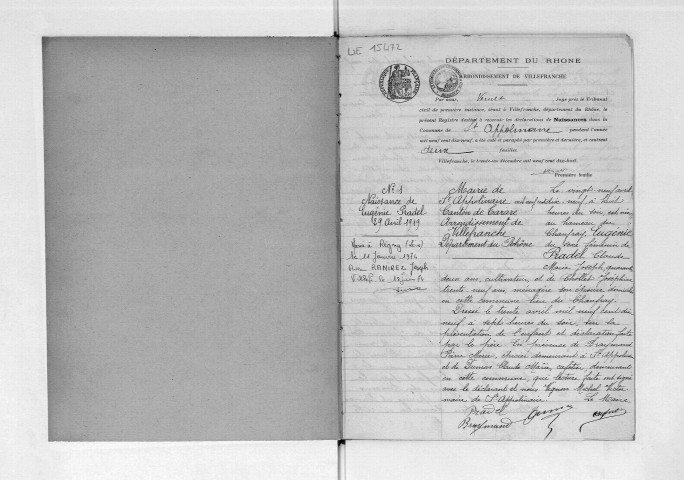 4E 15472
DÉPARTEMENT DU RHONE
ARRONDISSEMENT DE VILLEFRANCHE
Par nous, Juge près le Tribunal
civil de première instance, séant à Villefranche, département du Rhône, le
présent Registre destiné à recevoir les déclarations de Naissances dans la
Commune de St Appolinaire pendant l'année
mil neuf cent dix-neuf, a été coté et paraphé par première et dernière, et contient
feuilles.
Villefranche, le décembre mil neuf cent dix-huit.
Première feuille
N° 1
Naissance de
Eugénie Pradel
29 Avril 1919
à Régny (Loire)
le 11 Janvier
avec RAMIREZ Joseph
Mairie de
St Appolinaire
Canton de Tarare
Arrondissement de
Villefranche
Département du Rhône
Le vingt neuf avril
mil neuf cent dix neuf à huit
heures du soir, est née
au hameau du
Chanfray, Eugénie
du sexe féminin de
Pradel Claude
Marie Joseph, quarante
deux ans, cultivateur, et de Chollet Joséphine
trente neuf ans, ménagère son épouse domiciliés
en cette commune lieu du Chanfray.
Dressé le trente avril mil neuf cent dix
neuf à sept heures du soir, sur la
présentation de l'enfant et déclaration faite
par le père. En présence de
Pierre Marie, demeurant à St Appolinaire
et de Dumas Claude Marie, cafetier, demeurant
en cette commune, qui lecture faite ont signé
avec le déclarant et nous Michel Victor
maire de St Appolinaire. Le Maire
Pradel